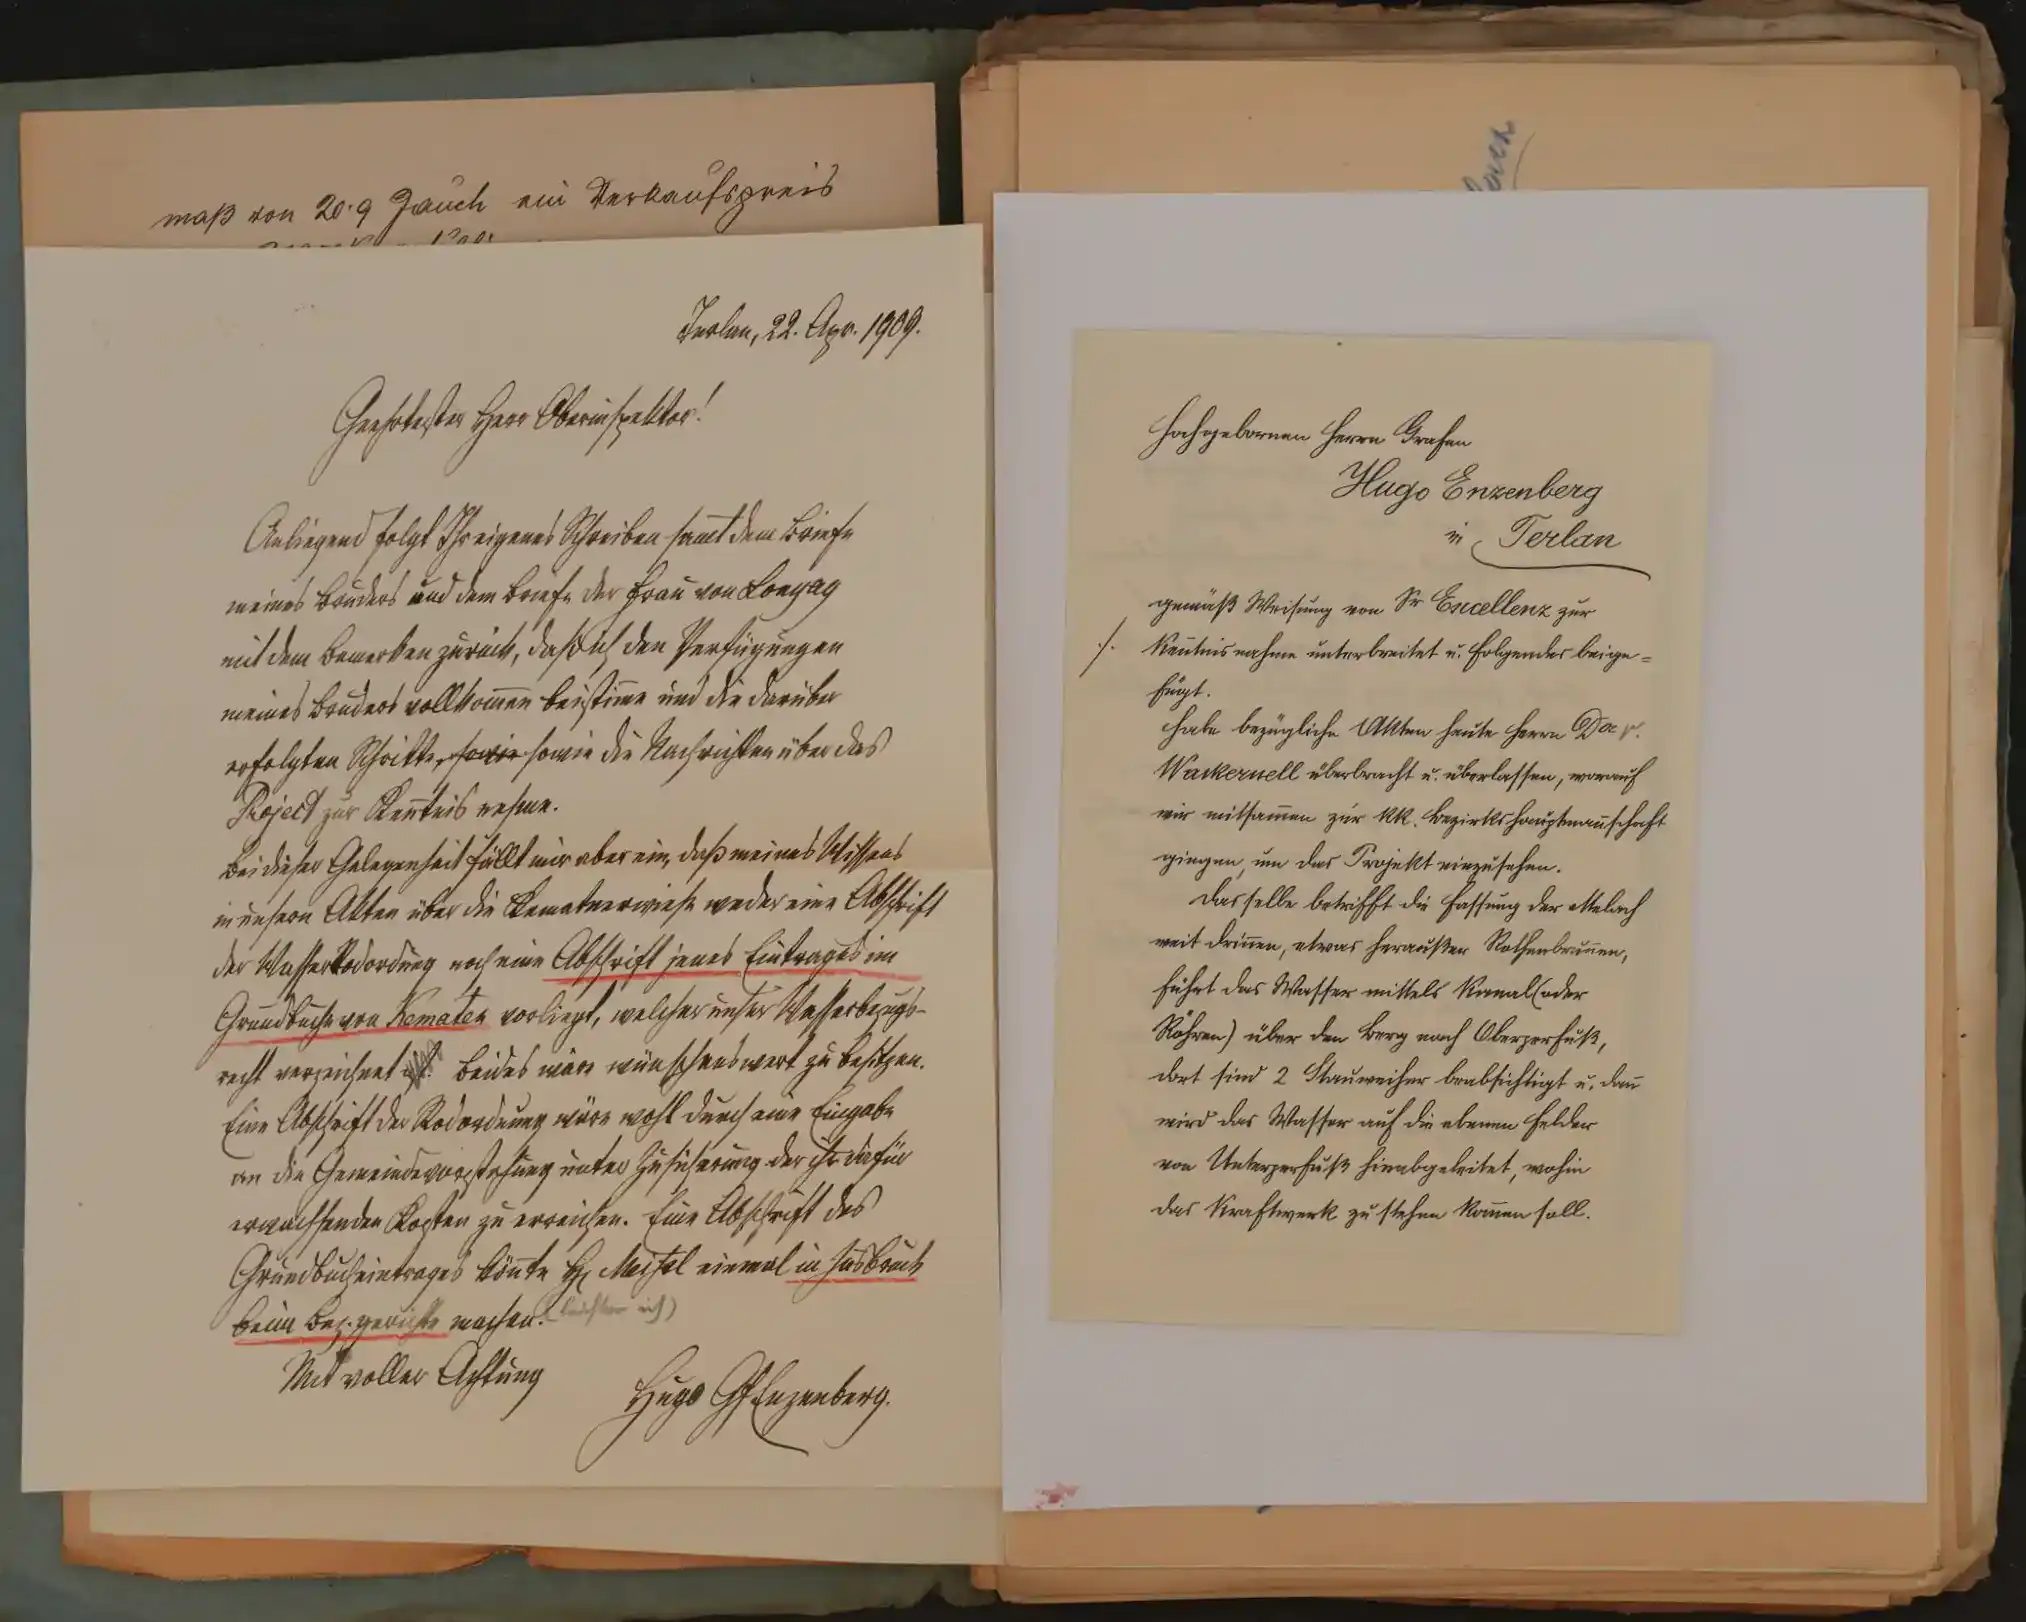 maß von 20.9 Jauch ein Verkaufspreis
Terlan, 22. Apr. 1909.
Geehrtester Herr Oberinspektor!
Anliegend folgt Ihr eigenes Schreiben sam̅t dem Briefe
meines Bruders und dem Briefe der Frau von
mit dem Bemerken zurück, daß ich den Verfügungen
meines Bruders vollkom̅en beistim̅e und die darüber
erfolgten Schritte, sowie sowie die Nachrichten über das
Project zur Ken̅tnis nehme.
Bei dieser Gelegenheit fällt mir aber ein, daß meines Wissens
in unsern Akten über die Kematnerwiese weder eine Abschrift
der Wasserrodordnung noch eine Abschrift jenes Eintrages im
Grundbuche von Kematen vorliegt, welcher unser Wasserbezugs-
recht verzeichnet ist. Beides wäre wünschenswert zu besitzen.
Eine Abschrift der Rodordnung wäre wohl durch eine Eingabe
an die Gemeindevorstehung unter Zusicherung der ihr dafür
erwachsenden Kosten zu erreichen. Eine Abschrift des
Grundbucheintrages kön̅te H. Meisel einmal in Insbruck
beim Bez.gerichte machen. ( ich)
Mit voller Achtung
Hugo Gf Enzenberg.
Hochgebornen Herrn Grafen
Hugo Enzenberg
in Terlan
gemäß Weisung von Sr Excellenz zur
./. Ken̅tnisnahme unterbreitet u. Folgendes beige=
fügt.
Habe bezügliche Akten heute Herrn Dor v.
Wackernell überbracht u. überlassen, worauf
wir mitsam̅en zur kk. Bezirkshauptman̅schaft
gingen, um das Projekt einzusehen.
Dasselbe betrifft die Fassung der Melach
weit drin̅en, etwas heraußer Rothenbrun̅en,
führt das Wasser mittels Kanal (oder
Röhren) über den Berg nach Oberperfuß,
dort sind 2 Stauweiher beabsichtigt u. dan̅
wird das Wasser auf die ebenen Felder
von Unterperfuß hinabgeleitet, wohin
das Kraftwerk zu stehen kom̅en soll.